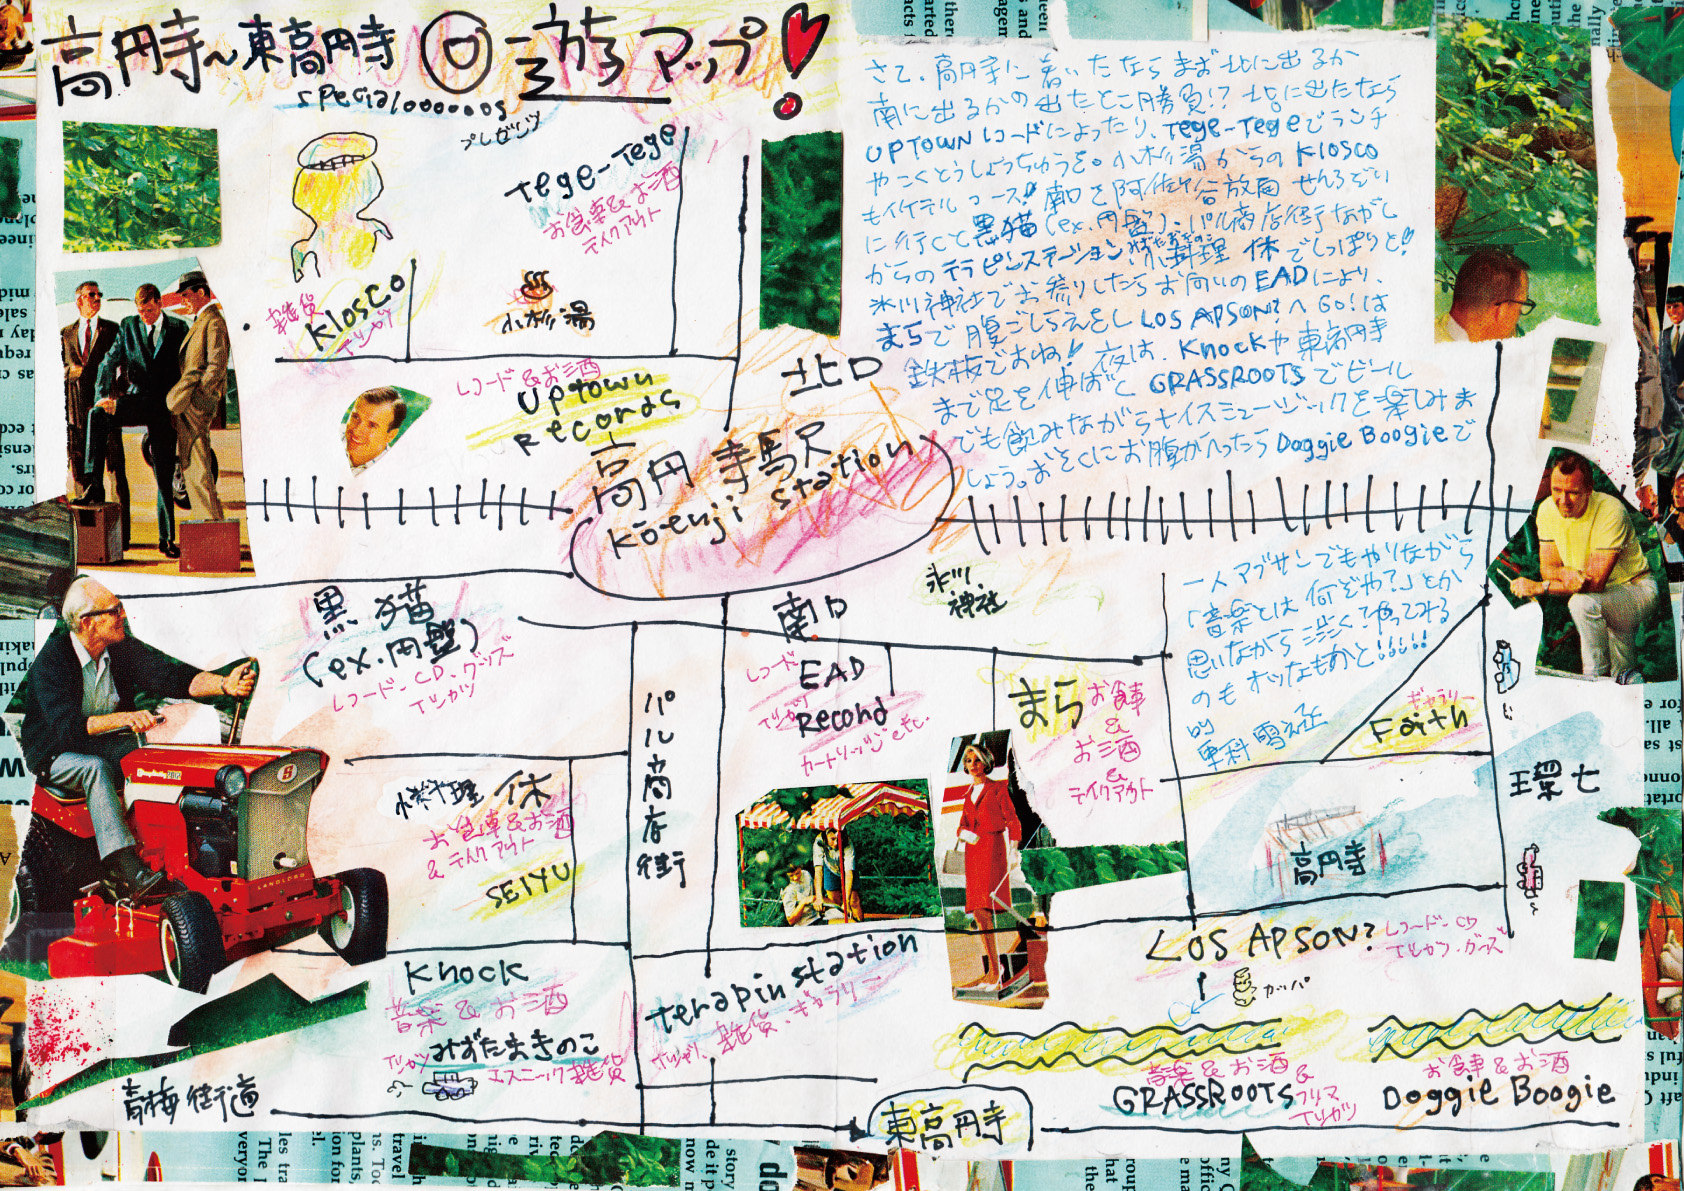 高円寺〜東高円寺 回遊マップ!
specialooooooos
プレゼンツ
Tege-Tege
お食事&お酒
テイクアウト
雑貨
KIosCo
Tシャツ
小杉湯
レコード&お酒
Uptown
Records
北口
高円寺駅
kō-enji station
さて、高円寺に着いたならまず北に出るか
南に出るかの出たとこ勝負!? 北に出たなら
UPTOWNレコードによったり、Tege-Tegeでランチ
やこくとうしょうちゅうを。小杉湯からのKIosco
もイケテルコース!! 南口を阿佐ヶ谷方面せんろぞい
に行くと黒猫(ex.円盤)、パル商店街ながし
からのテラピンステーション、みずたまきのこ、水料理 休でしっぽりと!!
氷川神社でお参りしたらお向いのEADにより、
まらで腹ごしらえをしLOS APSON?へGO!は
鉄板であね! 夜は、Knockや東高円寺
まで足を伸ばしGRASSROOTSでビール
でも飲みながらナイスミュージックを楽しみま
しょう。おそくにお腹がへったらDoggie Boogieで
一人マブサンでもやりながら
「音楽とは何ぞや?」とか
思いながら渋く唄ってみる
のもオツなもかと!!!!!
by
黒猫
(ex.円盤)
レコード・CD・グッズ
Tシャツ
氷川
神社
南口
レコード
EAD
Record
Tシャツ
カートリッジetc.
まら
お食事
&
お酒
&
テイクアウト
ギャラリー
Faith
環七
高円寺
パル商店街
休
お食事&お酒
&テイクアウト
SEIYU
Knock
音楽&お酒
Tシャツ
みずたまきのこ
エスニック雑貨
terapin station
Tシャツ、雑貨、ギャラリー
LOS APSON?
レコード・CD
Tシャツ・グッズ
カッパ
音楽&お酒
GRASSROOTS
&
フリマ
Tシャツ
お食事&お酒
Doggie Boogie
青梅街道
東高円寺
LANDLORD